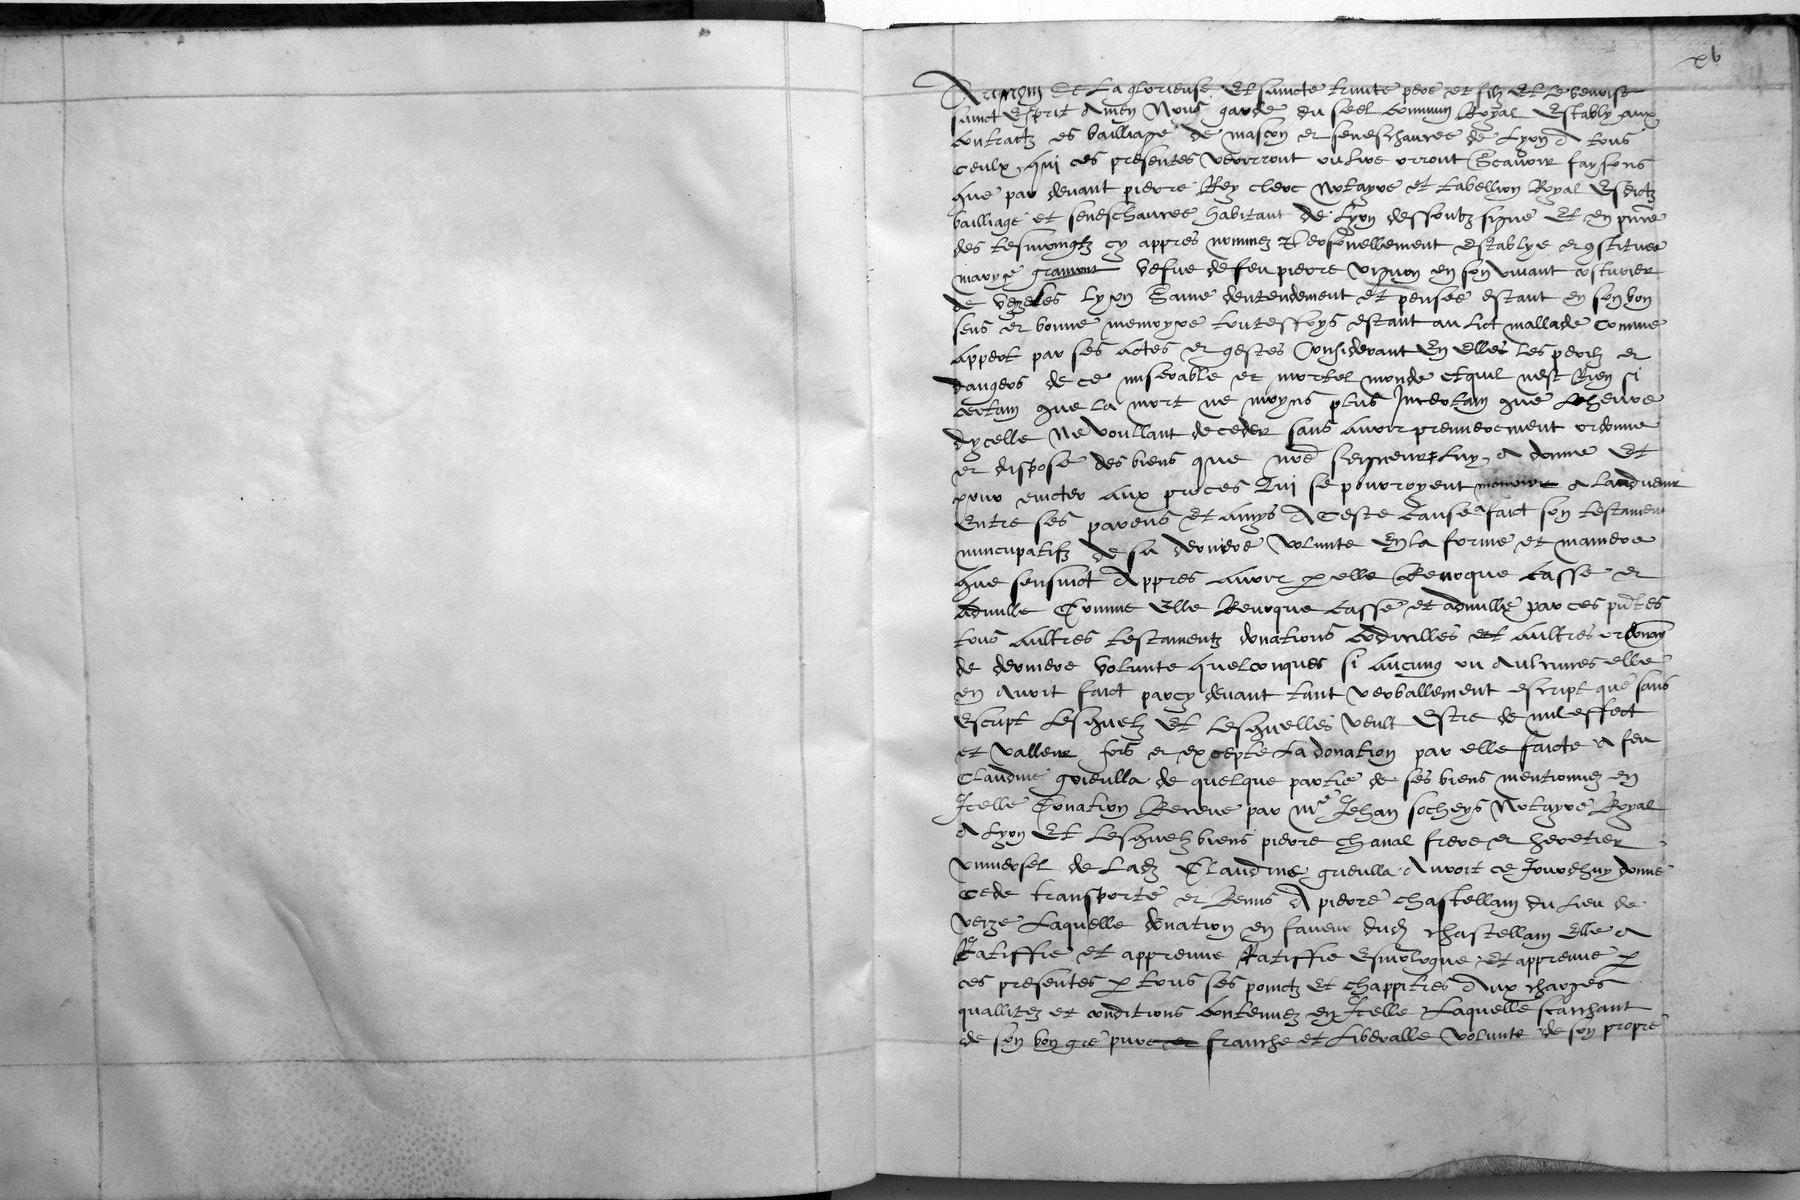 xv
Au nom de La glorieuse Et saincte trinite pere et filz Et le benoist
sainct Esprit Amen Nous garde du seel commun Royal Estably aux
contractz es bailliage de mascon et seneschaucee de Lyon A tous
ceulx qui ces presentes verront ou lire orront Scavoir faysons
que par devant pierre Rey clerc Notayre et tabellion Royal Esdictz
bailliage et seneschaucee habitant de Lyon dessoubz signe Et en pnce
des tesmoingtz cy appres nommez Personnellement establye et 9stituee
marye vefve de feu pierre vignon en son vivant costurier
de Lyon Saine dentendement et pensee estant en son bon
sens et bonne memoyre touteffoys estant au lict mallade Comme
appert par ses actes et gestes Considerant En elles les perilz et
dangers de ce miserable et mortel monde et quil nest Rien si
certain que la mort ne moyns plus Incertain que Lheure
dycelle Ne voullant deceder sans avoir premierement ordonne
et dispose des biens que nre seigneur Luy A donne Et
pour eviter aux proces Qui se pourroyent mouvoir A ladvenir
Entre ses parens et amys A Ceste Cause a faict son testament
nuncupatifz de sa derniere volunte En la forme et maniere
que sensuict Appres avoir p elle Revoque casse et
adnulle Comme Elle Revoque casse et adnulle par ces pntes
tous aultres testamentz donations codicilles et aultres ordonan
de derniere volunte quelconques si aucung ou Aulcunes elle
en avoit faict par cy devant tant verballement escript que sans
escript Lesquelz Et Lesquelles veult Estre de nul effect
et valleur fors et excepte La donation par elle faicte A feu
Claudine grieulla de quelque partie de ses biens mentionnez en
Icelle Donation Receue par Me Jehan socheys Notayre Royal
A Lyon Et Lesquelz biens pierre chanal frere et heretier
universel de Ladz Claudine grieulla Avoit ce Jourdhuy donne
cede transporte et Remis A pierre chastellain du Lieu de
verze Laquelle donation en faveur dudz chastellain Elle A
Ratiffie et appreuve Ratiffie Esmologue Et appreuve p
ces presentes p tous ses poinctz Et chappitres Aux charges
quallitez et conditions contenuez en Icelle Laquelle scaichant
de son bon gre pure franche et Liberalle volunte de son propre